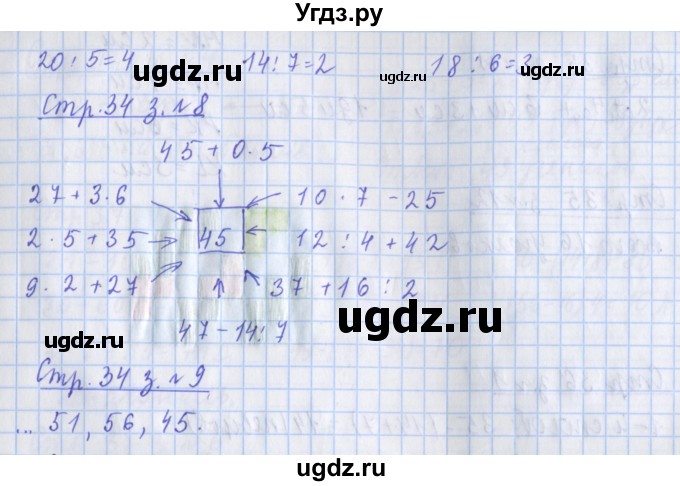 Угдз.ру
20 : 5 = 4 14 : 7 = 2 18 : 6 = 3
ugdz.ru ugdz.ru ugdz.ru
Стр. 34 з. №8
45 + 0 · 5
27 + 3 · 6 10 · 7 - 25
2 · 5 + 35 45 12 : 4 + 42
9 · 2 + 27 37 + 16 : 2
47 - 14 : 7
ugdz.ru ugdz.ru
Стр. 34 з. №9
... 51, 56, 45.
ugdz.ru ugdz.ru
ugdz.ru